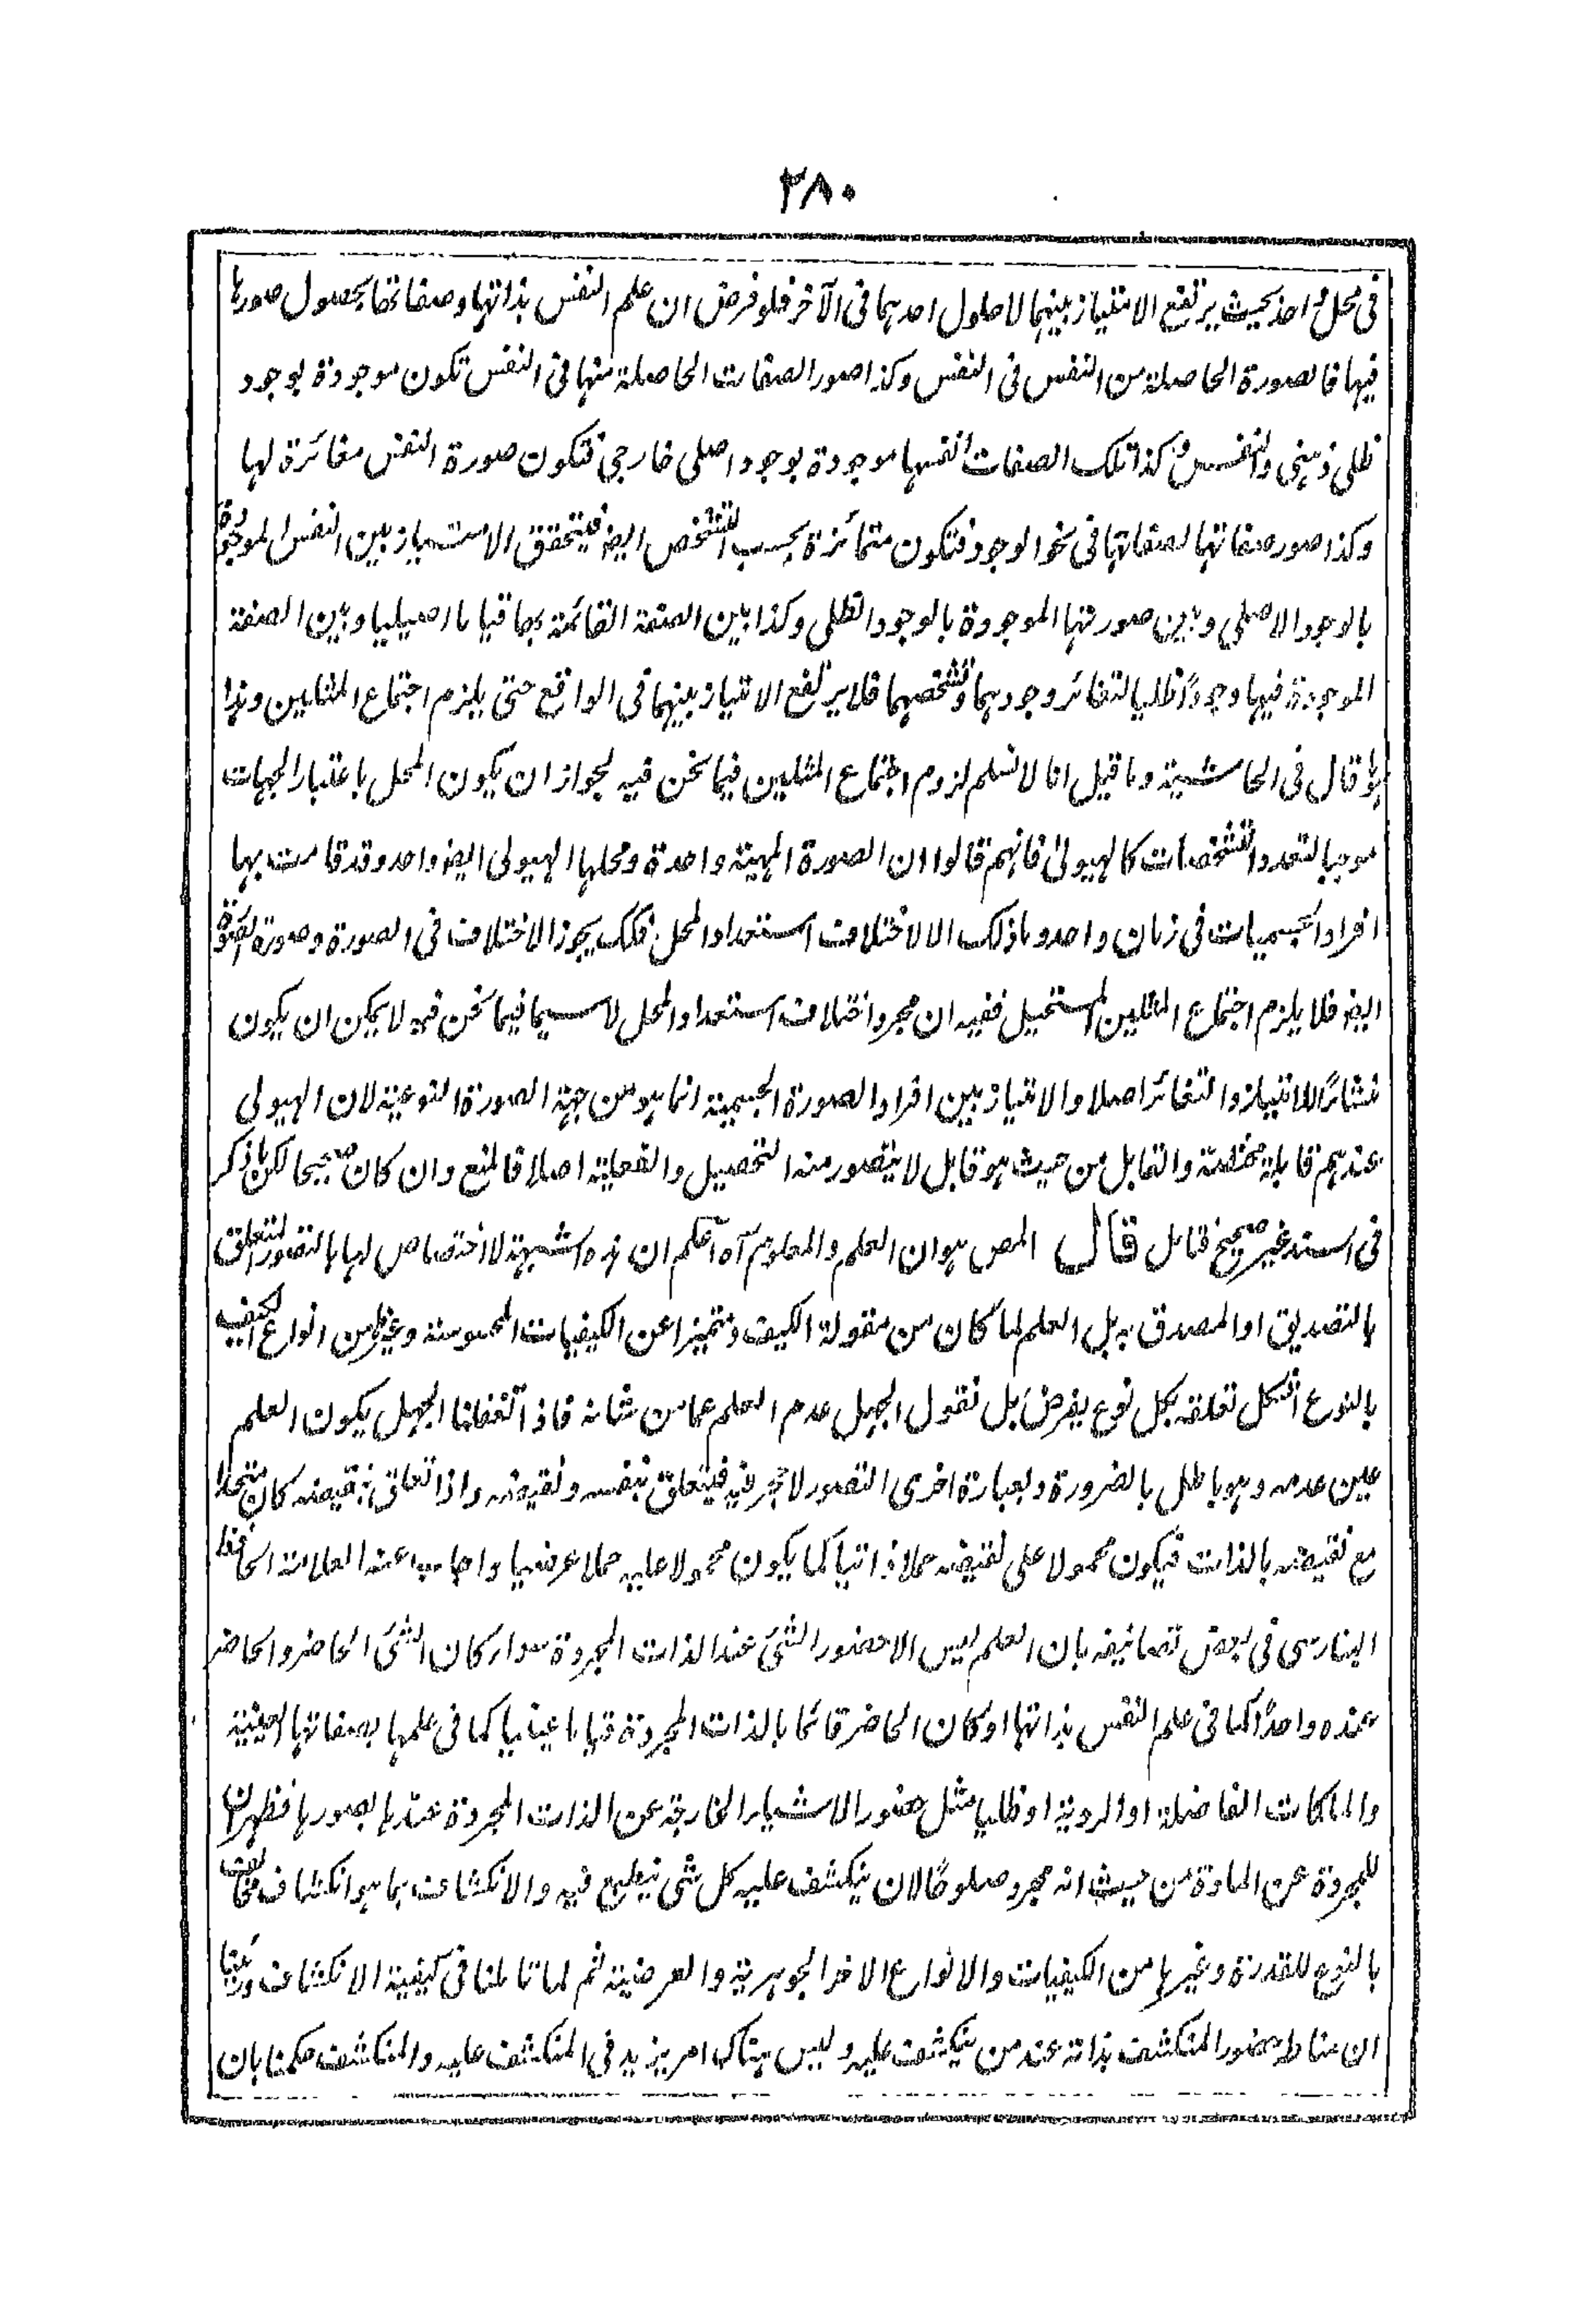 ٢٨٠
فى محل واحد بحيث يرتفع الامتياز بينهما لا حلول احدهما فى الآخر فلو فرض ان علم النفس بذاتها وصفاتها بحصول صورها
فيها فالصورة الحاصلة من النفس فى النفس وكذا صور الصفات الحاصلة منها فى النفس تكون موجودة بوجود
ظلى ذهنى والنفس وكذا تلك الصفات انفسها موجودة بوجود اصلى خارجى فتكون صورة النفس مغائرة لها
وكذا صور صفاتها لصفاتها فى نحو الوجود فتكون متمائزة بحسب التشخص ايضا فيتحقق الامتياز بين النفس الموجودة
بالوجود الاصلى وبين صورتها الموجودة بالوجود الظلى وكذا بين الصفة القائمة بها قياما اصيليا وبين الصفة
الموجودة فيها وجودًا ظليا لتغائر وجودهما وتشخصهما فلا يرتفع الامتياز بينهما فى الواقع حتى يلزم اجتماع المثلين وهذا
قال فى الحاشية وما قيل انا لا نسلم لزوم اجتماع المثلين فيما نحن فيه لجواز ان يكون المحل باعتبار الجهات
موجبا لتعدد التشخصات كالهيولى فانهم قالوا ان الصورة المهية واحدة ومحلها الهيولى ايضا واحد وقد قامت بها
افراد الجسميات فى زمان واحد وما ذلك الا لاختلاف استعداد المحل فكك يجوز الاختلاف فى الصورة وصورة الصورة
ايضا فلا يلزم اجتماع المثلين المستحيل ففيه ان مجرد اختلاف استعداد المحل لا سيما فيما نحن فيه لا يمكن ان يكون
منشأً للامتياز والتغائر اصلا والامتياز بين افراد الصورة الجسمية انما هو من جهة الصورة النوعية لان الهيولى
عندهم قابلة محضة والقابل من حيث هو قابل لا يتصور منه التحصيل والفعلية اصلا فالمنع وان كان صحيحا لكن ما ذكر
فى السند غير صحيح فتامل قال المص هو ان العلم والمعلوم آه اعلم ان هذه الشبهة لا اختصاص لها بالتصور المتعلق
بالتصديق او المصدق به بل العلم لما كان من مقولة الكيف ومتميزا عن الكيفيات المحسوسة وغيرها من انواع الكيف
بالنوع اشكل تعلقه بكل نوع يفرض بل نقول الجهل عدم العلم عما من شانه فاذا تعقلنا الجهل يكون العلم
عين عدمه وهو باطل بالضرورة وبعبارة اخرى التصور لا حجر فيه فيتعلق بنفسه ونقيضه واذا تعلق بنقيضه كان متحدا
مع نقيضه بالذات فيكون محمولا على نقيضه حملا ذاتيا كما يكون محمولا عليه حملا عرضيا واجاب عنه العلامة الحافظ
البنارسى فى بعض تصانيفه بان العلم ليس الا حضور الشئ عند الذات المجردة سواء كان الشئ الحاضر والحاضر
عنده واحدًا كما فى علم النفس بذاتها او كان الحاضر قائما بالذات المجردة قياما عينيا كما فى علمها بصفاتها العينية
والملكات الفاضلة او الردية او ظليا مثل حضور الاشياء الخارجة عن الذات المجردة عندها بصورها فظهر ان
للمجردة عن المادة من حيث انه مجرد صلوحًا لان ينكشف عليه كل شئ ينطبع فيه والانكشاف بما هو انكشاف مخالف
بالنوع للقدرة وغيرها من الكيفيات والانواع الاخر الجوهرية والعرضية ثم لما تاملنا فى كيفية الانكشاف
ان مناط حضور المنكشف بذاته عند من ينكشف عليه وليس هناك امر يزيد فى المنكشف عليه والمنكشف حكمنا بان